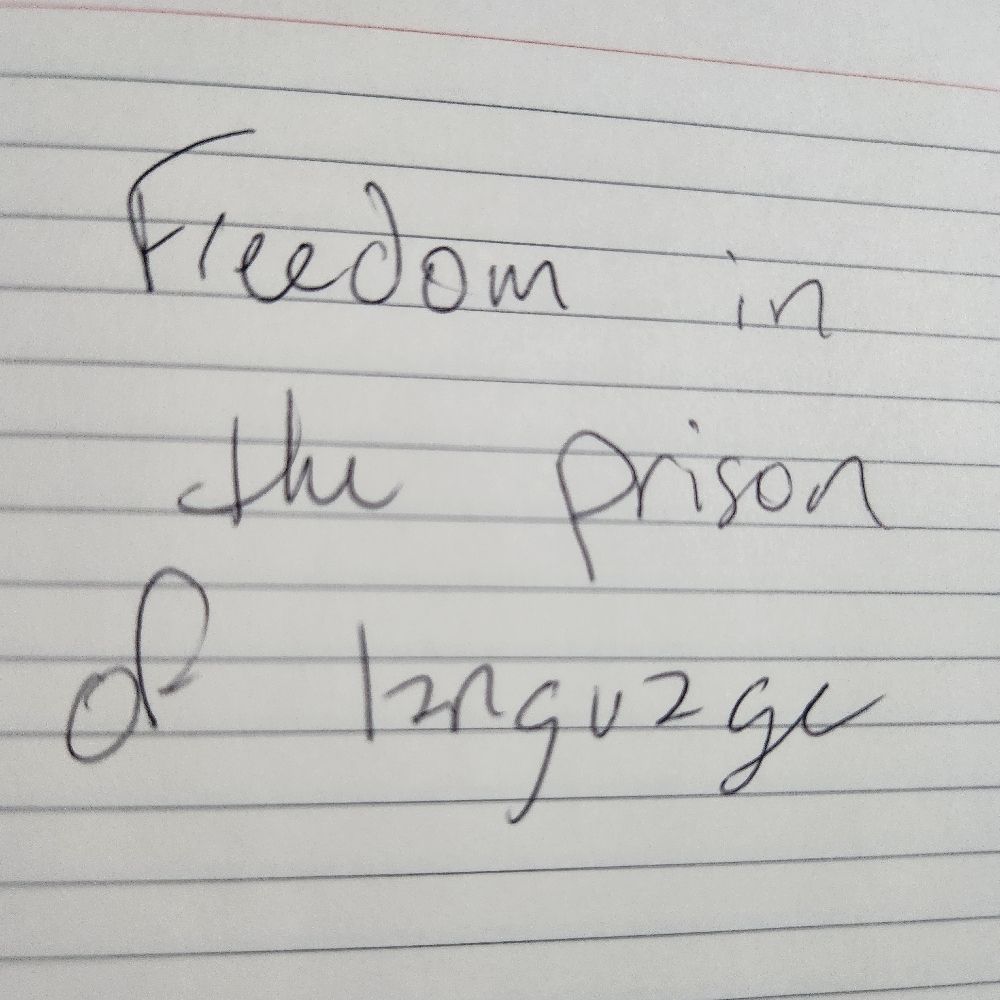 Freedom in
the prison
of language